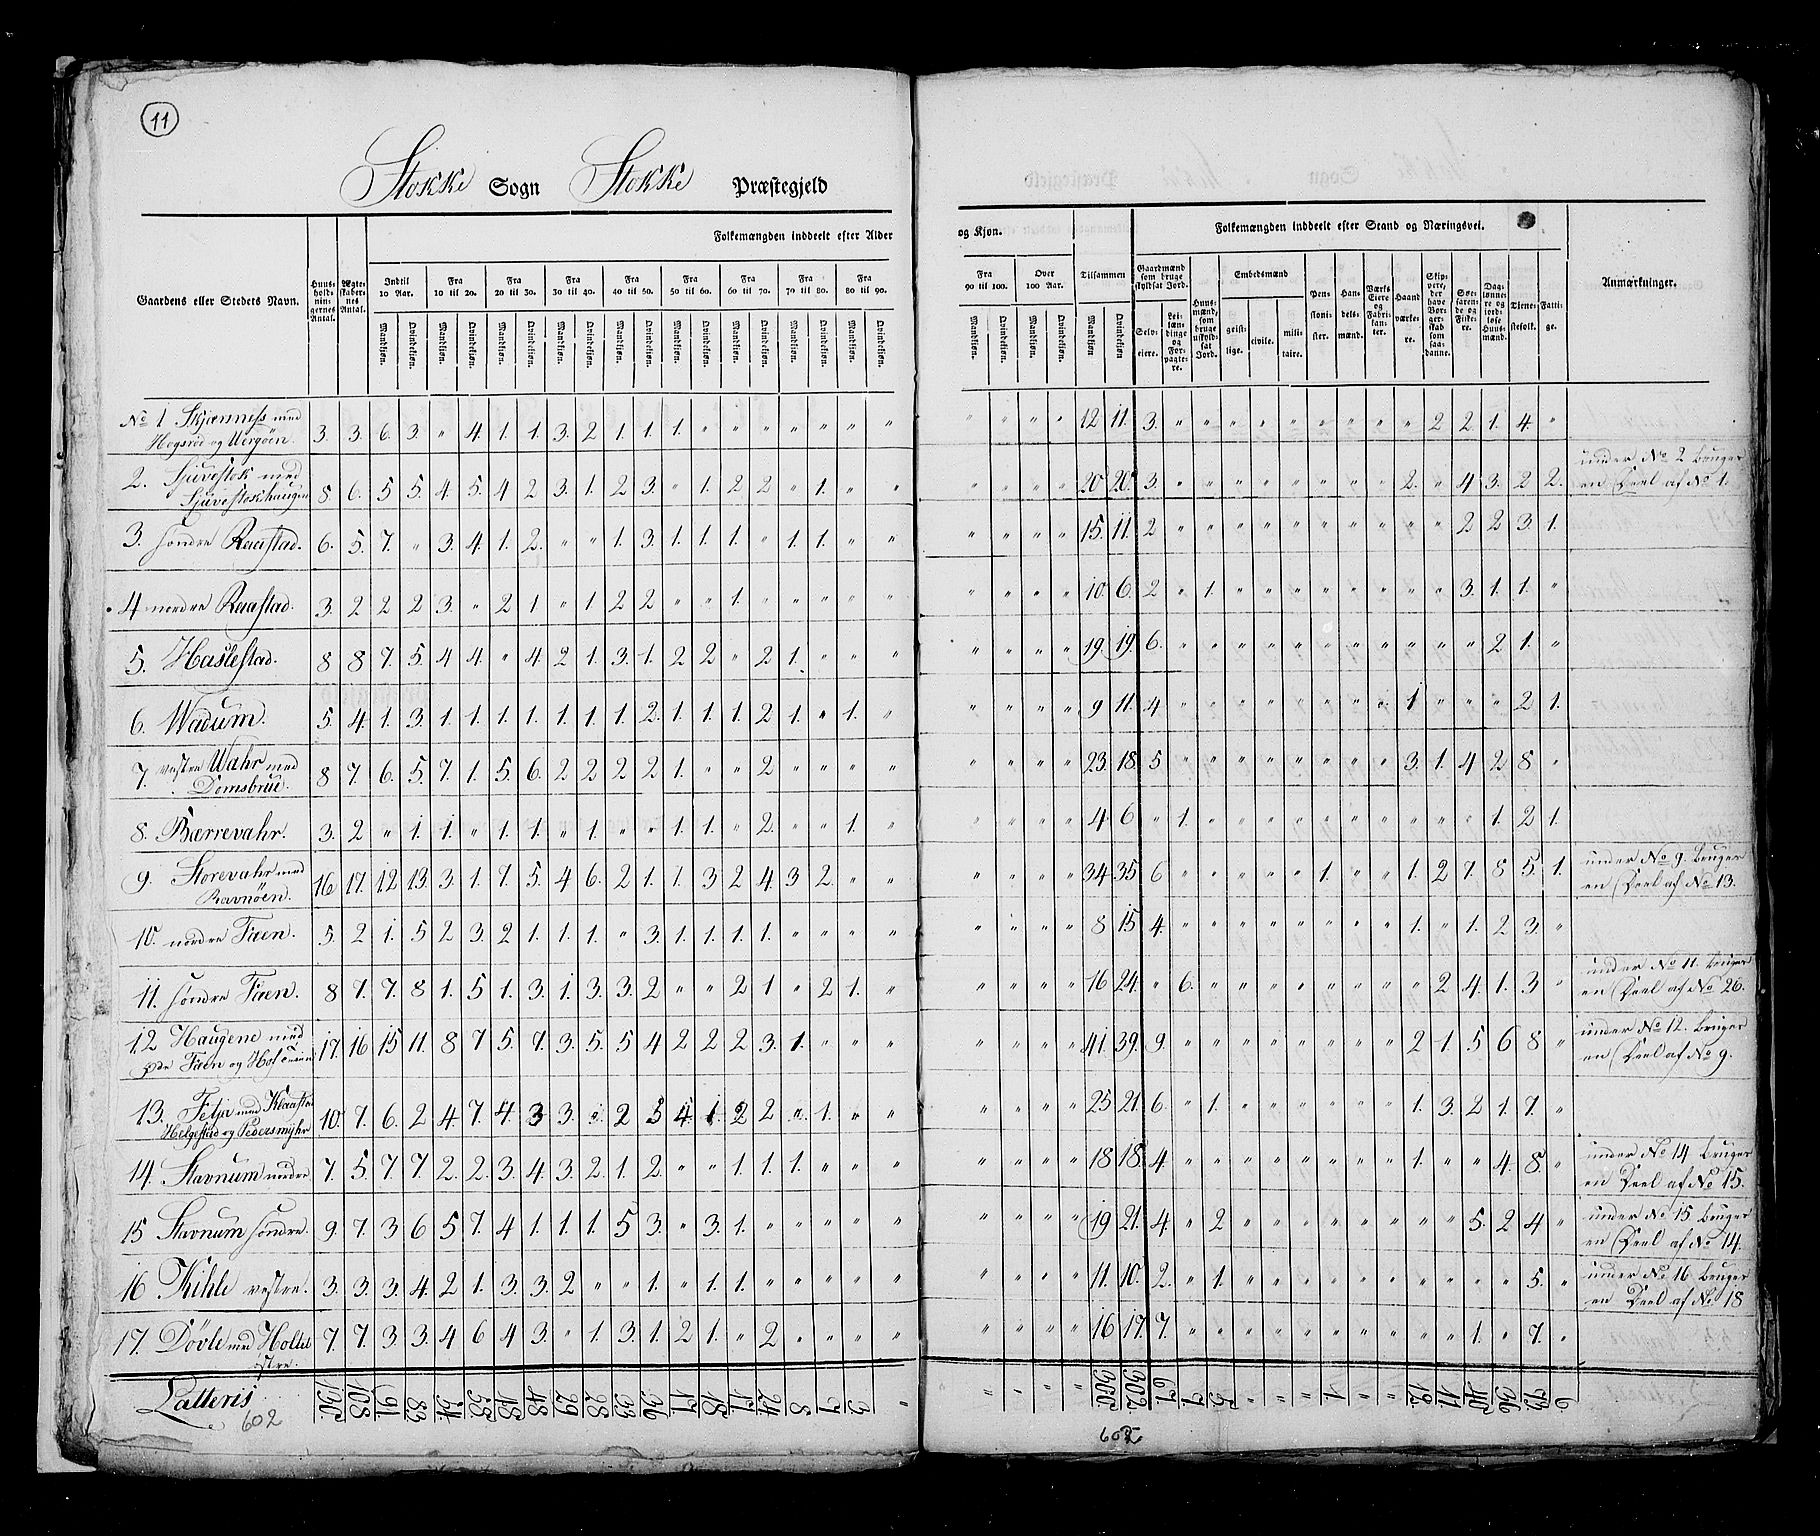 11
Stokke Sogn Stokke Præstegjeld
Folkemængden inddeelt efter Alder
og Kjøn.
Folkemængden inddeelt efter Stand og Næringsvei.
Gaardens eller Stedets Navn.
Huus-holdnin-gernes Antal.
Ægte-skaber-nes Antal.
Indtil 10 Aar.
Fra 10 til 20.
Fra 20 til 30.
Fra 30 til 40.
Fra 40 til 50.
Fra 50 til 60.
Fra 60 til 70.
Fra 70 til 80.
Fra 80 til 90.
Fra 90 til 100.
Over 100 Aar.
Tilsammen
Mandkjøn. Qvindekjøn.
Gaardmænd som bruge skyldsat Jord.
Selv-eiere.
Lei-læn-dinge og For-pagte-re.
Huus-mænd, som bruge uskyld-sat Jord.
Embedsmænd
geist-lige.
civile.
mili-taire.
Pen-sioni-ster.
Han-dels-mænd.
Værks Eiere og Fabri-kan-ter.
Haand værke-re.
Skip-pere, der have Borger-skab som saa-danne.
Søe-faren-de og Fiske-re.
Dag-lønne-re og jord-løse Huus-mænd.
Tiene-stefolk.
Fatti-ge.
Anmærkninger.
No 1 Skjærness med
Hogsröd og Uergöen. 3. 3. 6. 3. " 4. 1. 1. 3. 2 1. 1. 1. " " " " " " " " " " " 12 11. 3. " " " " " " " " " 2 2. 1. 4. "
2. Sjuestok med
Sjuestokhaugen 8 6. 5 5. 4. 5. 4 2 3. 1. 2 3. " 1. 2 2 " 1. " " " " " " 20 20. 3. " " " " " " " " 2. " 4 3. 2 2. under No 2 bruger
en Deel af No 1.
3. söndre Raastad. 6. 5. 7. " 3. 4. 1. 2. " " 1. 3. 1. 1. 1. " 1. 1. " " " " " " 15. 11. 2 " " " " " " " " " " 2 2 3. 1.
4 nordre Raastad. 3. 2 2 2 3. " 2 1 " 1 2 2 " " 1. " " " " " " " " " 10. 6. 2 " 1. " " " " " " " " 3. 1. 1. "
5. Haslestad. 8 8 7. 5. 4 4. " 4 2 1. 3. 1. 2 2 " 2 1. " " " " " " " 19. 19. 6. " " " " " " " " " " " 2 1. "
6. Wadum. 5. 4. 1. 3. 1. 1. 1. 1. 1. 1. 1. 2. 1. 1. 1. 2 1. " 1. " " " " " 9 11. 4 " " " " " " " " 1. " " " 2 1.
7. vestre Wahr med
Domsbrue. 8 7. 6. 5. 7. 1. 5. 6. 2 2 2 2 1. " " 2 " " " " " " " " 23. 18. 5 " " " " " " " " 3. 1. 4 2 8 "
8. Bærrevahr. 3. 2 " 1. 1. " 1. 1. " 1. " " 1. 1. " 2. " " 1. " " " " " 4. 6 " 1. " " " " " " " " " " 1. 2 1.
9. Storevahr med
Ravnöen. 16 17. 12 13. 3. 1. 7. 5. 4 6. 2 1. 1. 3 2 4. 3 2. " " " " " " 34. 35 6 " " " " " 1. " " 1. 2 7. 8 5. 1. under No 9. bruger
en Deel af No 13.
10. nordre Faen. 5. 2 1. 5 2 3. 2 1. 1. 1. " 3. 1. 1. 1. 1. " " " " " " " " 8 15 4. " " " " " " " " 1. " 1. 2 3. "
11. söndre Faen. 8 7. 7. 8 1. 5 1. 3. 1. 3. 3. 2 " " 2 1 " 2 1. " " " " " 16 24. " 6. " " " " " " " " 2 4. 1. 3 " under No 11. bruger
en Deel af No 26.
12 Haugene med
Faen og 17. 16 15 11. 8 7 5. 7. 3. 5. 5 4 2 2 2 3. 1. " " " " " " " 41. 39. 9. " " " " " " " " 2 1. 5 6 8 " under No 12. bruger
en Deel af No 9.
13. med
Helgestad og Pedersmyhr 10. 7. 6. 2 4. 7. 4. 3 3. 2 3 4. 1. 2 2 " 1. " " " " " " 25 21. 6 " 1. " " " " " " 1. 3. 2 1. 7. "
14. Stavnum nordre 7. 5. 7. 7. 2 2. 3. 4. 3. 2. 1. 2 " " 1. 1. 1. " " " " " " " 18 18. 4 " " " " " " " " 1. " " 4. 8 " under No 14 bruger
en Deel af No 15.
15 Stavnum söndre. 9. 7. 3 6 5 7. 4 1. 1. 1. 5 3. " 3. 1. " " " " " " " " " 19 21. 4 " 2 " " " " " " " " 5. 2 4 " under No 15. bruger
en Deel af No 14.
16 Kihle vestre. 3. 3. 3. 4. 2 1. 3. 3. 2 " " 1. " 1. 1. " " " " " " " " " 11. 10. 2. " 1. " " " " " " " " " " 5. " under No 16 bruger
en Deel af No 18
17. Dövle med Holtet
östre. 7. 7. 3 3. 4 6 4 3. " 1. 3. 1. 2 1. " 2 " " " " " " " " 16 17. 7. " " " " " " " " " " 1. " 7. "
Latteris 108 91 83 48 29 28 33 36 17 18 17 24 8 7 3 " " " " " 300 302 67 7 5 " " " 1. " " 12 11 40 36 73 6
602
602